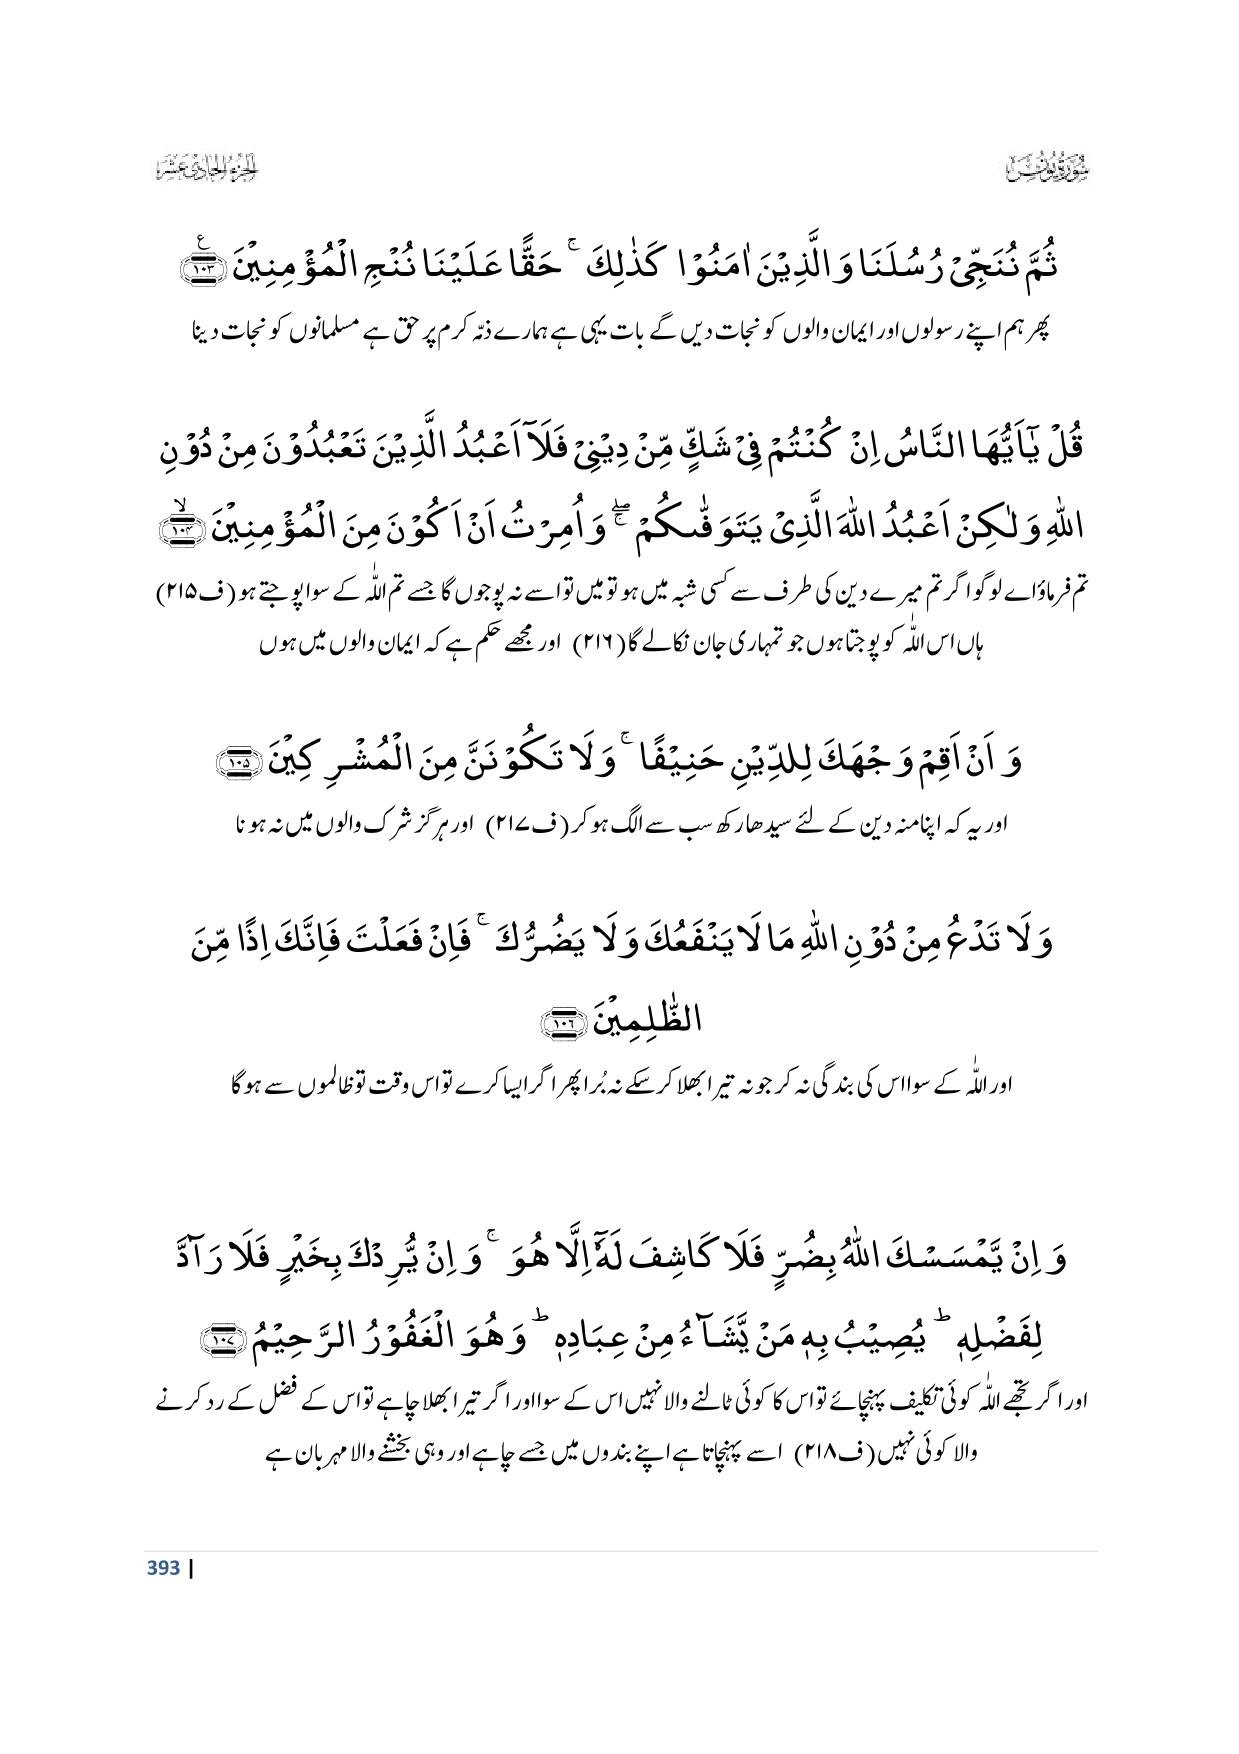 سورۃ یونس
الجزء الحادی عشر
ثُمَّ نُنَجِّیْ رُسُلَنَا وَ الَّذِیْنَ اٰمَنُوْا كَذٰلِكَ ۚ حَقًّا عَلَیْنَا نُنْجِ الْمُؤْمِنِیْنَ ﴿۱۰۳﴾ ع
پھر ہم اپنے رسولوں اور ایمان والوں کو نجات دیں گے بات یہی ہے ہمارے ذمّہ کرم پر حق ہے مسلمانوں کو نجات دینا
قُلْ یٰۤاَیُّهَا النَّاسُ اِنْ كُنْتُمْ فِیْ شَكٍّ مِّنْ دِیْنِیْ فَلَاۤ اَعْبُدُ الَّذِیْنَ تَعْبُدُوْنَ مِنْ دُوْنِ
اللّٰهِ وَ لٰكِنْ اَعْبُدُ اللّٰهَ الَّذِیْ یَتَوَفّٰىكُمْ ۚۖ وَ اُمِرْتُ اَنْ اَكُوْنَ مِنَ الْمُؤْمِنِیْنَ ﴿۱۰۴﴾ۙ
تم فرماؤ اے لوگو اگر تم میرے دین کی طرف سے کسی شبہ میں ہو تو میں تو اسے نہ پوجوں گا جسے تم اللّٰہ کے سوا پوجتے ہو (ف۲۱۵)
ہاں اس اللّٰہ کو پوجتا ہوں جو تمہاری جان نکالے گا (۲۱۶) اور مجھے حکم ہے کہ ایمان والوں میں ہوں
وَ اَنْ اَقِمْ وَجْهَكَ لِلدِّیْنِ حَنِیْفًا ۚ وَ لَا تَكُوْنَنَّ مِنَ الْمُشْرِكِیْنَ ﴿۱۰۵﴾
اور یہ کہ اپنا منہ دین کے لئے سیدھا رکھ سب سے الگ ہو کر (ف۲۱۷) اور ہرگز شرک والوں میں نہ ہونا
وَ لَا تَدْعُ مِنْ دُوْنِ اللّٰهِ مَا لَا یَنْفَعُكَ وَ لَا یَضُرُّكَ ۚ فَاِنْ فَعَلْتَ فَاِنَّكَ اِذًا مِّنَ
الظّٰلِمِیْنَ ﴿۱۰۶﴾
اور اللّٰہ کے سوا اس کی بندگی نہ کر جو نہ تیرا بھلا کرسکے نہ بُرا پھر اگر ایسا کرے تو اس وقت تو ظالموں سے ہوگا
وَ اِنْ یَّمْسَسْكَ اللّٰهُ بِضُرٍّ فَلَا كَاشِفَ لَهٗۤ اِلَّا هُوَ ۚ وَ اِنْ یُّرِدْكَ بِخَیْرٍ فَلَا رَآدَّ
لِفَضْلِهٖ ؕ یُصِیْبُ بِهٖ مَنْ یَّشَآءُ مِنْ عِبَادِهٖ ؕ وَ هُوَ الْغَفُوْرُ الرَّحِیْمُ ﴿۱۰۷﴾
اور اگر تجھے اللّٰہ کوئی تکلیف پہنچائے تو اس کا کوئی ٹالنے والا نہیں اس کے سوا اور اگر تیرا بھلا چاہے تو اس کے فضل کے رد کرنے
والا کوئی نہیں (ف۲۱۸) اسے پہنچاتا ہے اپنے بندوں میں جسے چاہے اور وہی بخشنے والا مہربان ہے
393 |